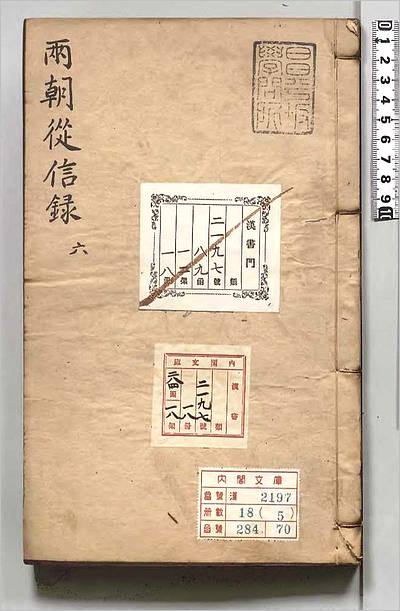 兩朝從信錄
六
昌平坂
學問所
漢書門
類
二一九七號
八九函
一二架
一八冊
內閣文庫
漢書
類
二一九七號
一八冊
架
內閣文庫
番號 漢 2197
冊數 18(5)
函號 284 70
0 1 2 3 4 5 6 7 8 9 10